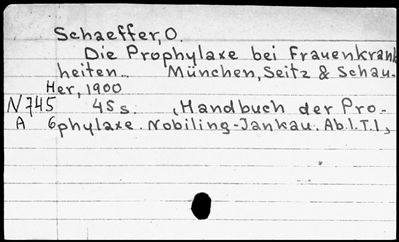 Schaeffer, O.
Die Prophylaxe bei Frauenkrank
heiten.. München, Seitz & Schau-
Her, 1900
N745 45 s. (Handbuch der Pro-
A 6 phylaxe. Nobiling-Jankau. Ab.I.T.I,